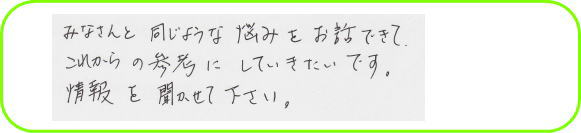 みなさんと同じような悩みをお話できて、
これからの参考にしていきたいです。
情報を聞かせて下さい。